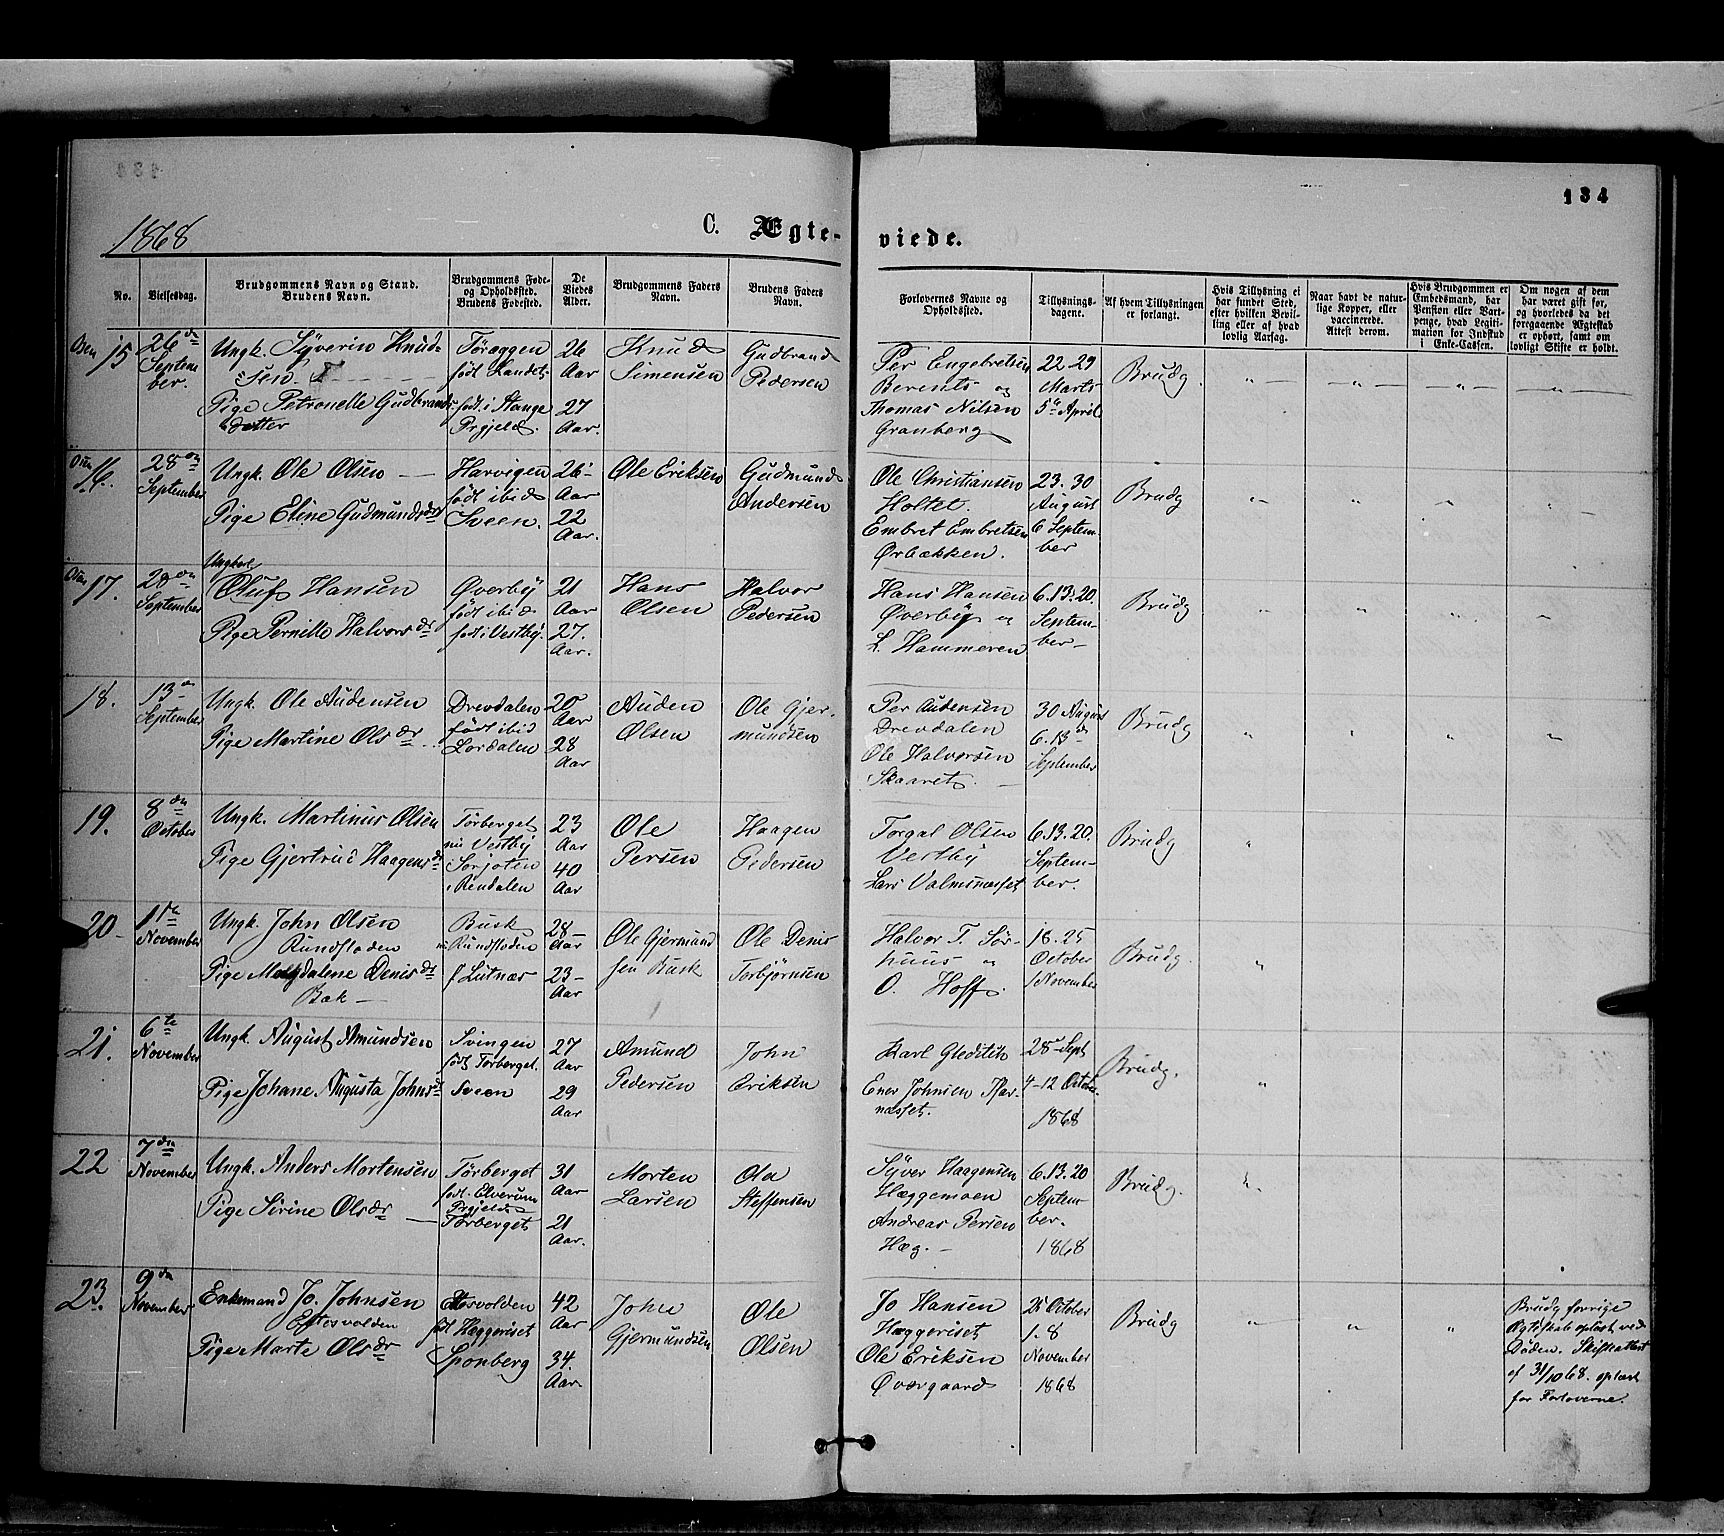 134
1868
C. Ægte-
viede.
No.
Vielsesdag.
Brudgommens Navn og Stand.
Brudens Navn.
Brudgommens Føde-
og Opholdssted.
Brudens Fødested.
De
Viedes
Alder.
Brudgommens Faders
Navn.
Brudens Faders
Navn.
Forlovernes Navne og
Opholdssted.
Tillysnings-
dagene.
Af hvem Tillysningen
er forlangt.
Hvis Tillysning ei
har fundet Sted,
efter hvilken Bevil-
ling eller af hvad
lovlig Aarsag.
Naar havt de natur-
lige Kopper, eller
vaccinerede.
Attest derom.
Hvis Brudgommen er
Embedsmand, har
Pension eller Vart-
penge, hvad Legiti-
mation for Indskud
i Enke-Cassen.
Om nogen af dem
har været gift før,
og hvorledes da det
foregaaende Ægteskab
er ophørt, samt om
lovligt Skifte er holdt.
Osen
15
26de
Septem-
ber.
Ungk. Syverin Knud-
sen.
Pige Petronelle Gudbrands-
datter
Töræggen
født Landet
født i Stange
Prgjeld.
26
Aar
27
Aar.
Knud
Simensen
Gudbrand
Pedersen
Per Engebretsen
Berents og
Thomas Nilsen
Granberg
22. 29
Marts
5te April
Brudg.
Osen
16.
28de
September
Ungk. Ole Olsen
Pige Eline Gudmundsdr
Harvigen
født ibid
Sveen.
26
Aar
22
Aar.
Ole Eriksen
Gudmund
Andersen
Ole Christiansen
Holtet.
Embret Embretsen
Ørbækken.
23. 30
August
6 Septem-
ber
Brudg
Osen
17.
28de
September
Ungkarl
Oluf Hansen
Pige Pernille Halvorsdr
Øverby
født ibid
født i Vestby.
21
Aar
27.
Aar.
Hans
Olsen
Halvor
Pedersen
Hans Hansen
Øverby og
L. Hammeren
6.13.20.
Septem-
ber
Brudg
18.
13de
September
Ungk. Ole Audensen
Pige Martine Olsdr
Drevdalen
født ibid
Lordalen
20
Aar
28
Aar
Auden
Olsen
Ole Gjer-
mundsen
Per Audensen
Drevdalen
Ole Halvorsen
Skaaret
30 August
6. 13de
September
Brudg
19.
8de
October
Ungk. Martinus Olsen
Pige Gjertrud Haagensdr
Törberget
nu Vestby
Sorjoten
i Rendalen
23
Aar
40
Aar
Ole
Persen
Haagen
Pedersen
Torgal Olsen
Vestby
Lars Valmsnæsset
6.13.20.
Septem-
ber.
Brudg
20
1te
November
Ungk. John Olsen
Rundfloden
Pige Magdalene Denisdr
Bæk
Busk
nu Rundfloden
f Lutnæs
28
Aar
23
Aar
Ole Gjermund
sen Busk
Ole Denis
Torbjørnsen
Halvor T. Sör-
huus og
O. Hoff
18. 25
October
1 November
Brudg.
21.
6te
November
Ungk. August Amundsen
Pige Johane Augusta Johnsdr
Svingen
født Törberget.
Sveen
27
Aar
29
Aar
Amund
Pedersen
John
Eriksen
Karl Gleditsh
Ener Johnsen
næsset.
28 Sept
4-12 October
1868
Brudg.
22
7de
November
Ungk. Anders Mortensen
Pige Sirine Olsdr
Törberget
født Elverum
Prgjeld
Törberget
31
Aar
21
Aar.
Morten
Larsen
Ola
Steffensen
Syver Haagensen
Hæggemoen
Andreas Persen
Hæg.
6.13.20
Septem-
ber.
1868
Brudg.
23.
9de
November
Enkemand Jo. Johnsen
Eltesvolden
Pige Marte Olsdr
Eltesvolden
født Hæggeriset
Sponberg
42
Aar
34.
Aar.
John
Gjermundsen
Ole
Olsen
Jo Hansen
Hæggeriset
Ole Eriksen
Øvergaard
25 October
1. 8
November
1868
Brudg
Brudg forrige
Ægteskab opløst ved
Döden. Skifteattest
af 31/10 68. oplæst
for Forloverne.